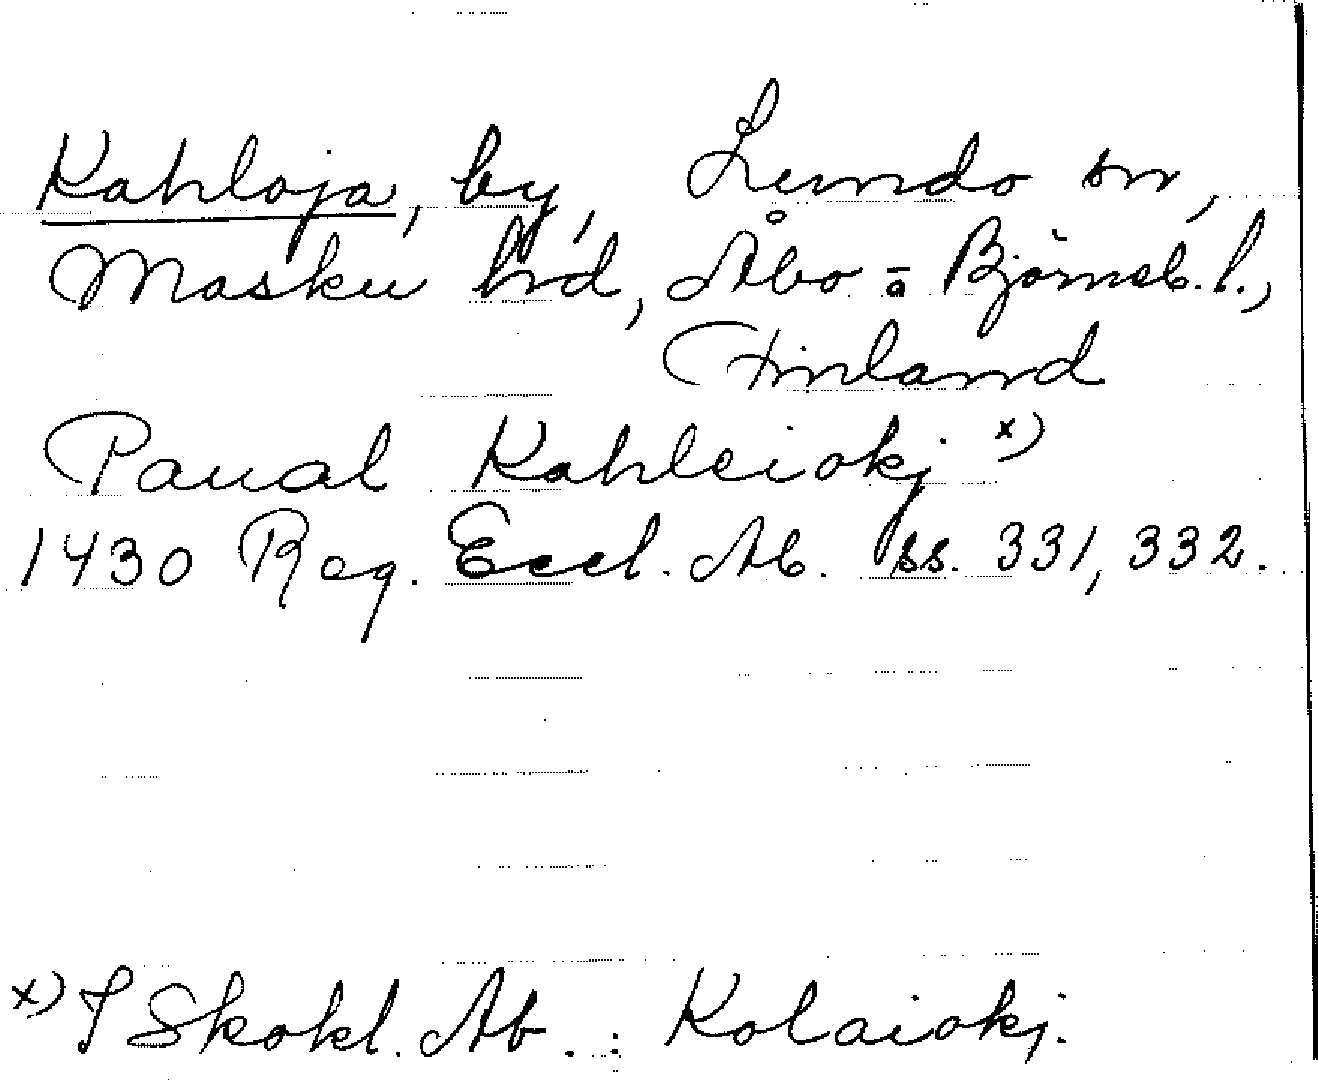 Kahloja, by, Lundo sn,
Masku hd, Åbo o. Björneb. l.,
Finland
Paual Kahleiokj x)
1430 Reg. Eccl. Ab. ss. 331, 332.
x) I Skokl. Ab. : Kolaiokj.